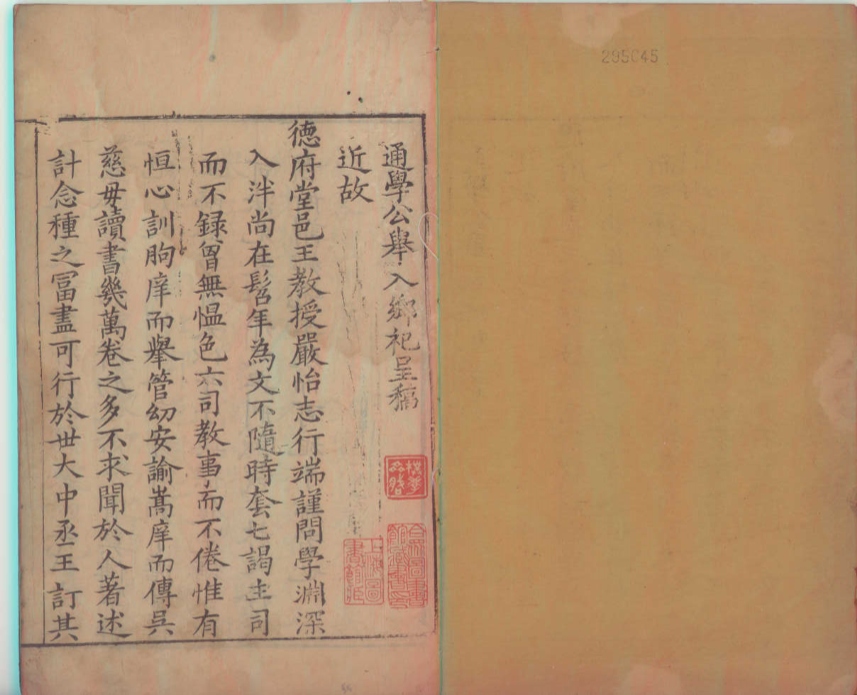 通學公舉入鄉祀呈稿
近故
德府堂邑王教授嚴怡志行端謹問學淵深
入泮尚在髫年為文不隨時套七謁主司
而不録曾無慍色六司教事而不倦惟有
恒心訓朐庠而舉管幼安諭嵩庠而傳呉
慈毋讀書幾萬卷之多不求聞於人著述
計念種之冨盡可行於世大中丞王訂其
295645